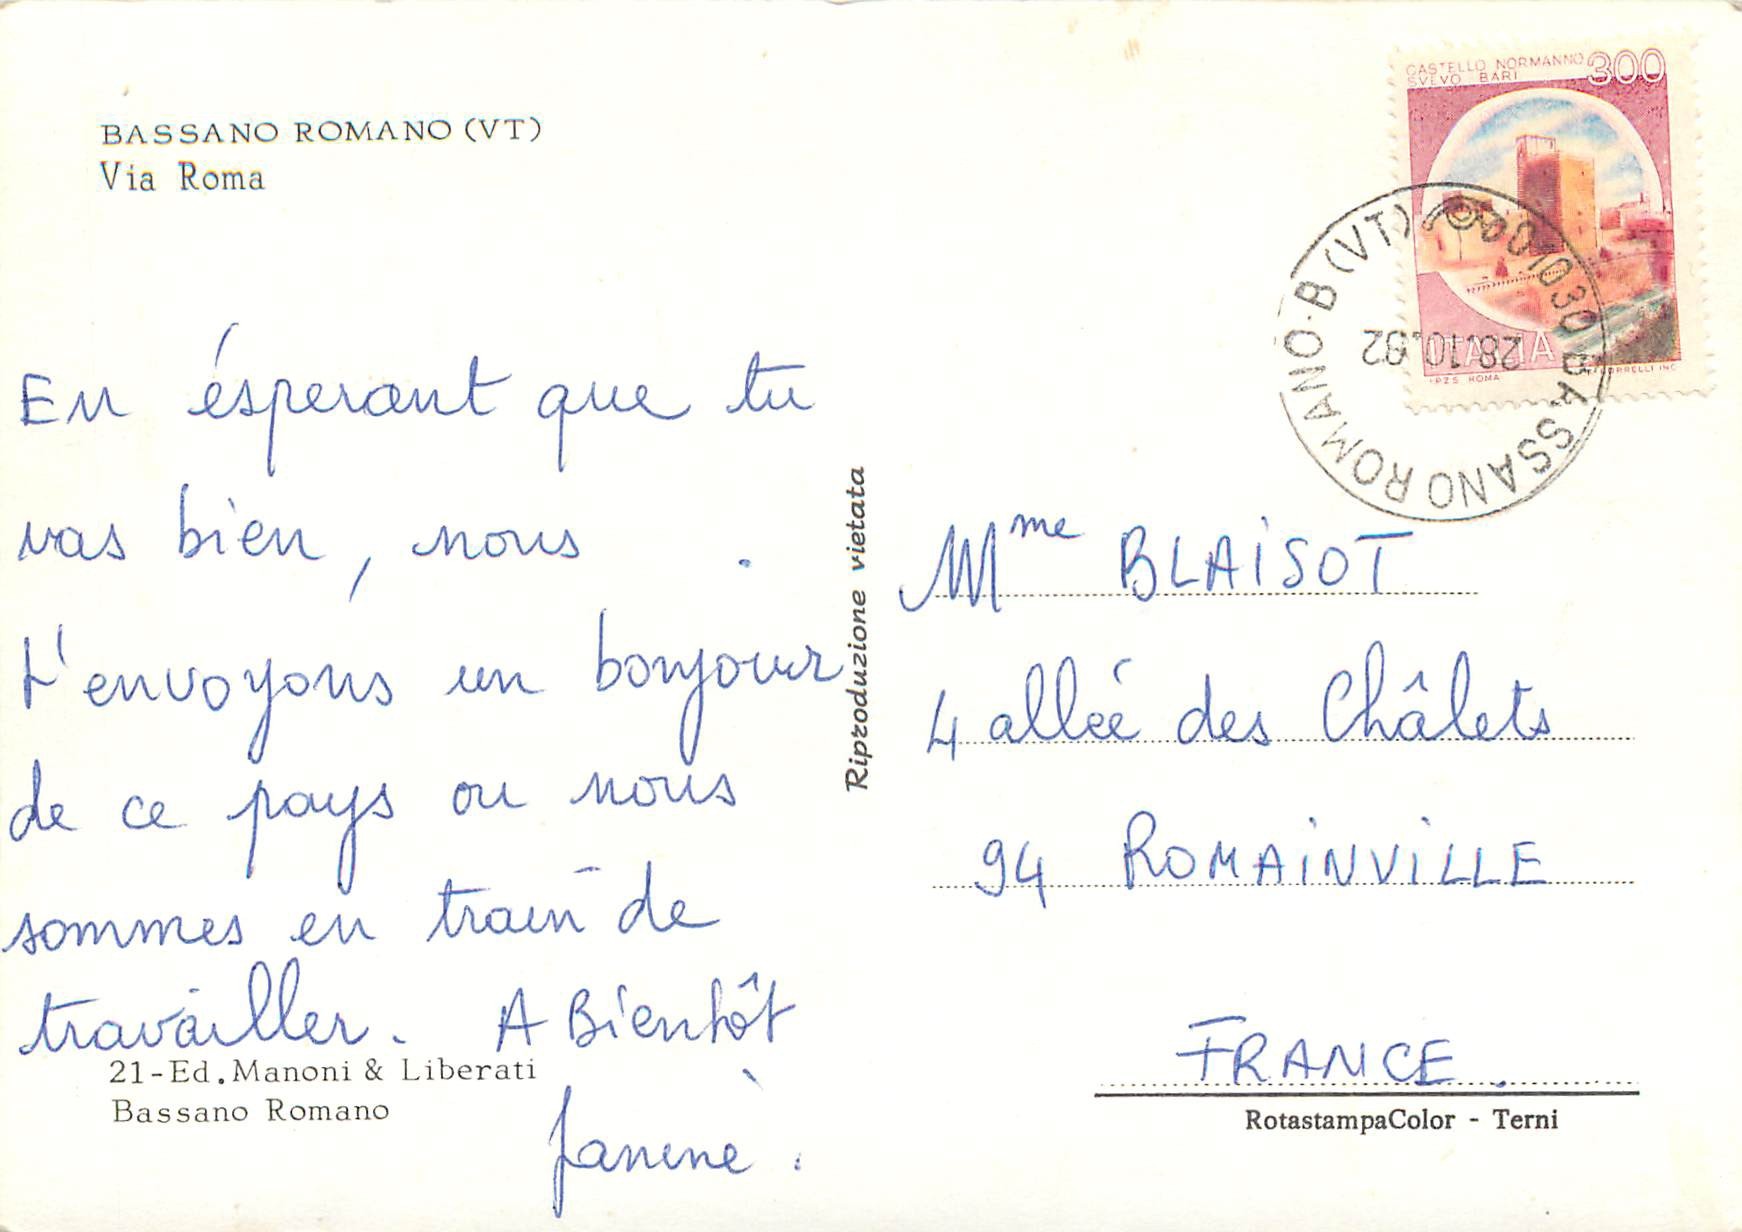 BASSANO ROMANO (VT)
Via Roma
En ésperant que tu
vas bien, nous
t'envoyons un bonjour
de ce pays ou nous
sommes en train de
travailler. A Bientôt
Janine.
21-Ed. Manoni & Liberati
Bassano Romano
Riproduzione vietata
CASTELLO NORMANNO
SVEVO BARI
300
ITALIA
I.P.Z.S. ROMA
01030 BASSANO ROMANO·B (VT)
28.10.82
Mme BLAISOT
4 allée des Châlets
94 ROMAINVILLE
FRANCE.
RotastampaColor - Terni